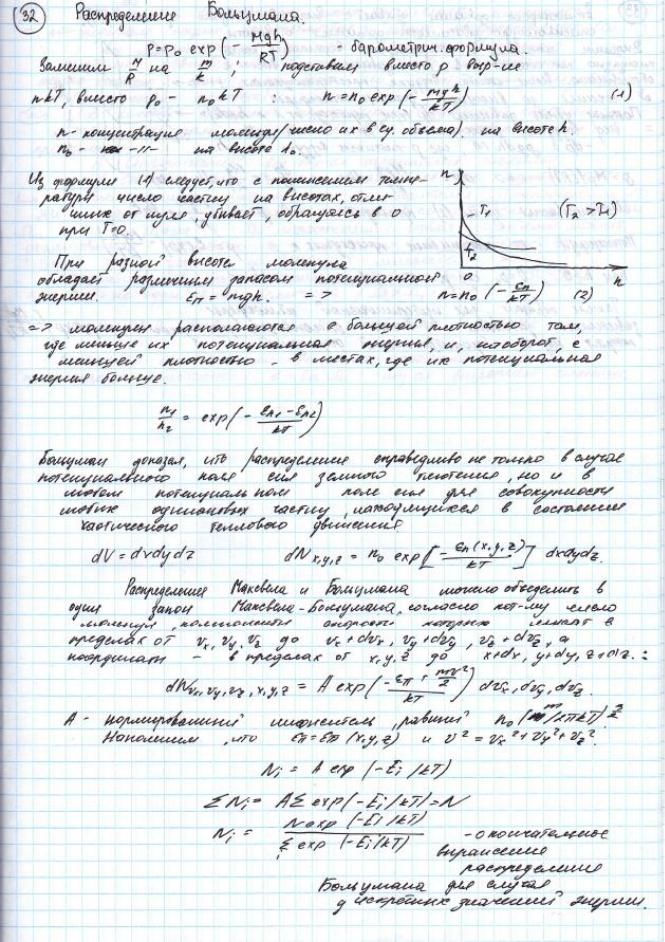 32 Распределение Больцмана.
p = p₀ exp(− Mgh/RT) - барометрич. формула.
Заменим M/R на m/k ; подставим вместо p выр-ие
nkT, вместо p₀ - n₀kT : n = n₀ exp(− mgh/kT) (1)
n - концентрация молекул (число их в ед. объема) на высоте h.
n₀ - -//- на высоте h₀.
Из формулы (1) следует, что с понижением темпе-
ратуры число частиц на высотах, отли-
чных от нуля, убывает, обращаясь в 0
при T=0.
n
T₁ (T₂ > T₁)
T₂
0
h
При разной высоте молекула
обладает различным запасом потенциальной
энергии. εп = mgh. => n = n₀ (− εп/kT) (2)
=> молекулы располагаются с большей плотностью там,
где меньше их потенциальная энергия, и, наоборот, с
меньшей плотностью - в местах, где их потенциальная
энергия больше.
n₁/n₂ = exp(− (εп1 − εп2)/kT)
Больцман доказал, что распределение справедливо не только в случае
потенциального поля сил земного тяготения, но и в
любом потенциальном поле сил для совокупности
любых одинаковых частиц, находящихся в состоянии
хаотического теплового движения
dV = dxdydz dNx,y,z = n₀ exp[− εп(x,y,z)/kT] dxdydz.
Распределения Максвела и Больцмана можно объеденить в
один закон Максвела-Больцмана, согласно кот-му число
молекул, компоненты скорости которых лежат в
пределах от vx, vy, vz до vx + dvx, vy + dvy, vz + dvz, а
координаты - в пределах от x, y, z до x+dx, y+dy, z+dz. :
dNvx,vy,vz,x,y,z = A exp(− (εп + mv²/2)/kT) dvx, dvy, dvz.
A - нормированный множитель, равный n₀ (m/2πkT)^3/2
Напомним, что εп = εп (x,y,z) и v² = vx² + vy² + vz².
Ni = A exp (− Ei /kT)
ΣNi = AΣ exp(− Ei /kT) = N
Ni = N exp (− Ei /kT) / Σi exp (− Ei /kT) - окончательное
выражение
распределение
Больцмана для случая
дискретных значений энергии.